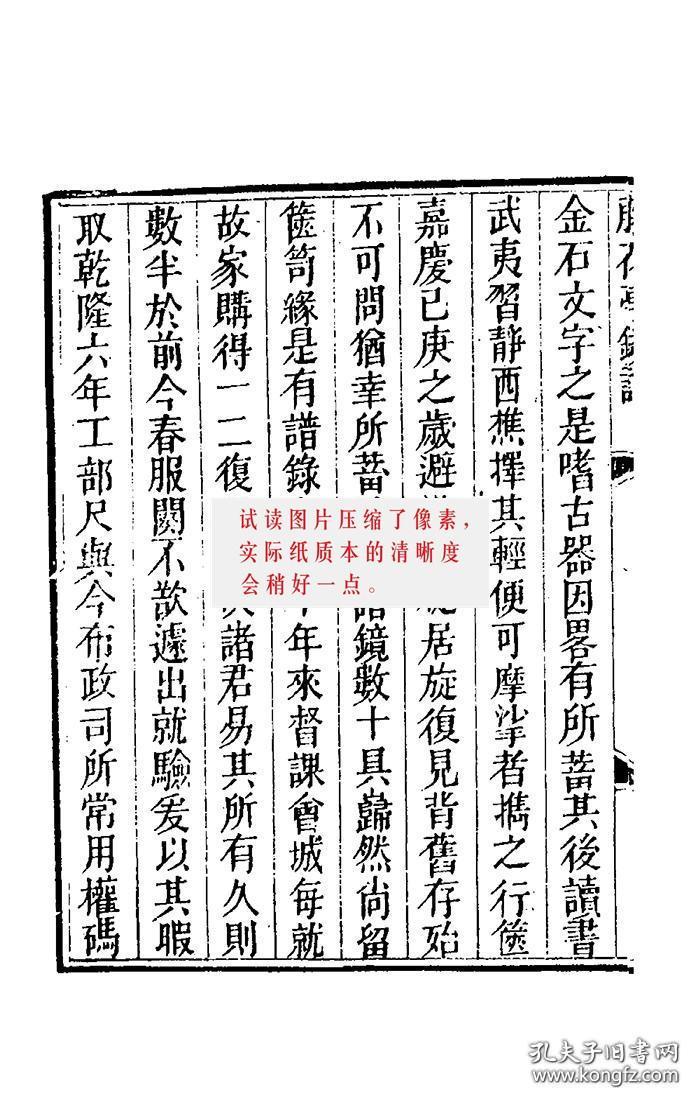 金石文字之是嗜古器因畧有所蓄其後讀書
武夷習靜西樵擇其輕便可摩挲者攜之行篋
嘉慶己庚之歲避居旋復見背舊存殆
不可問猶幸所蓄諸鏡數十具巋然尚留
篋笥緣是有譜錄年來督課會城每就
故家購得一二復諸君易其所有久則
數半於前今春服闋不歆遽出就驗爰以其暇
取乾隆六年工部尺與今布政司所常用權碼
试读图片压缩了像素，
实际纸质本的清晰度
会稍好一点。
孔夫子旧书网
www.kongfz.com